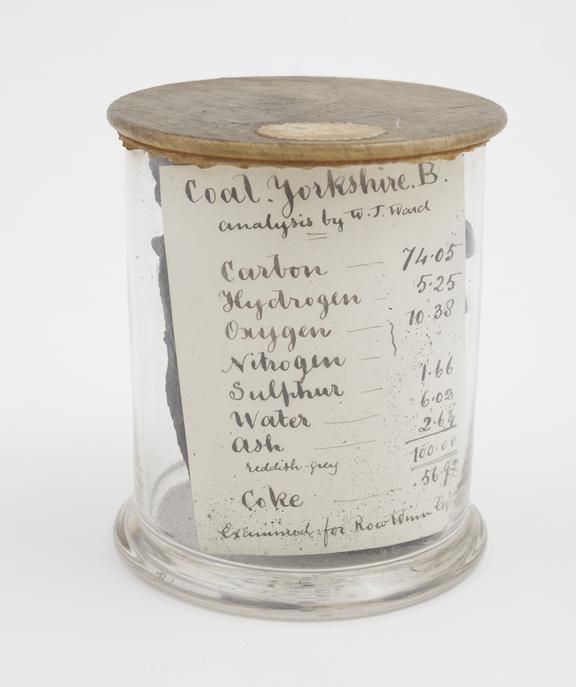 Coal. Yorkshire. B.
analysis by W. J. Ward
Carbon — 74.05
Hydrogen — 5.25
Oxygen — } 10.38
Nitrogen —
Sulphur — 1.66
Water — 6.02
Ash — 2.64
reddish-grey 100.00
Coke — 56.9
Examined for